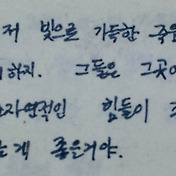 저 빛으로 가득한 죽음
하지. 그들은 그곳에
초자연적인 힘들이
는게 좋은거야.